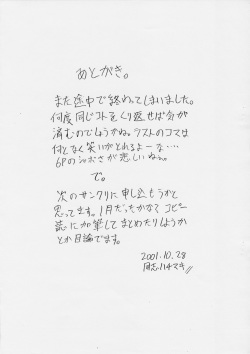 あとがき。
また途中で終わってしまいました。
何度同じコトをくり返せば気が
済むのでしょうかね。ラストのコマは
何となく笑いがとれるよーな…。
6Pの が悲しいねぇ。
で。
次のサンクリに申し込もうかと
思ってます。1月だったかな？コピー
誌に加筆してまとめたりしようか
とか目論でます。
2001.10.28